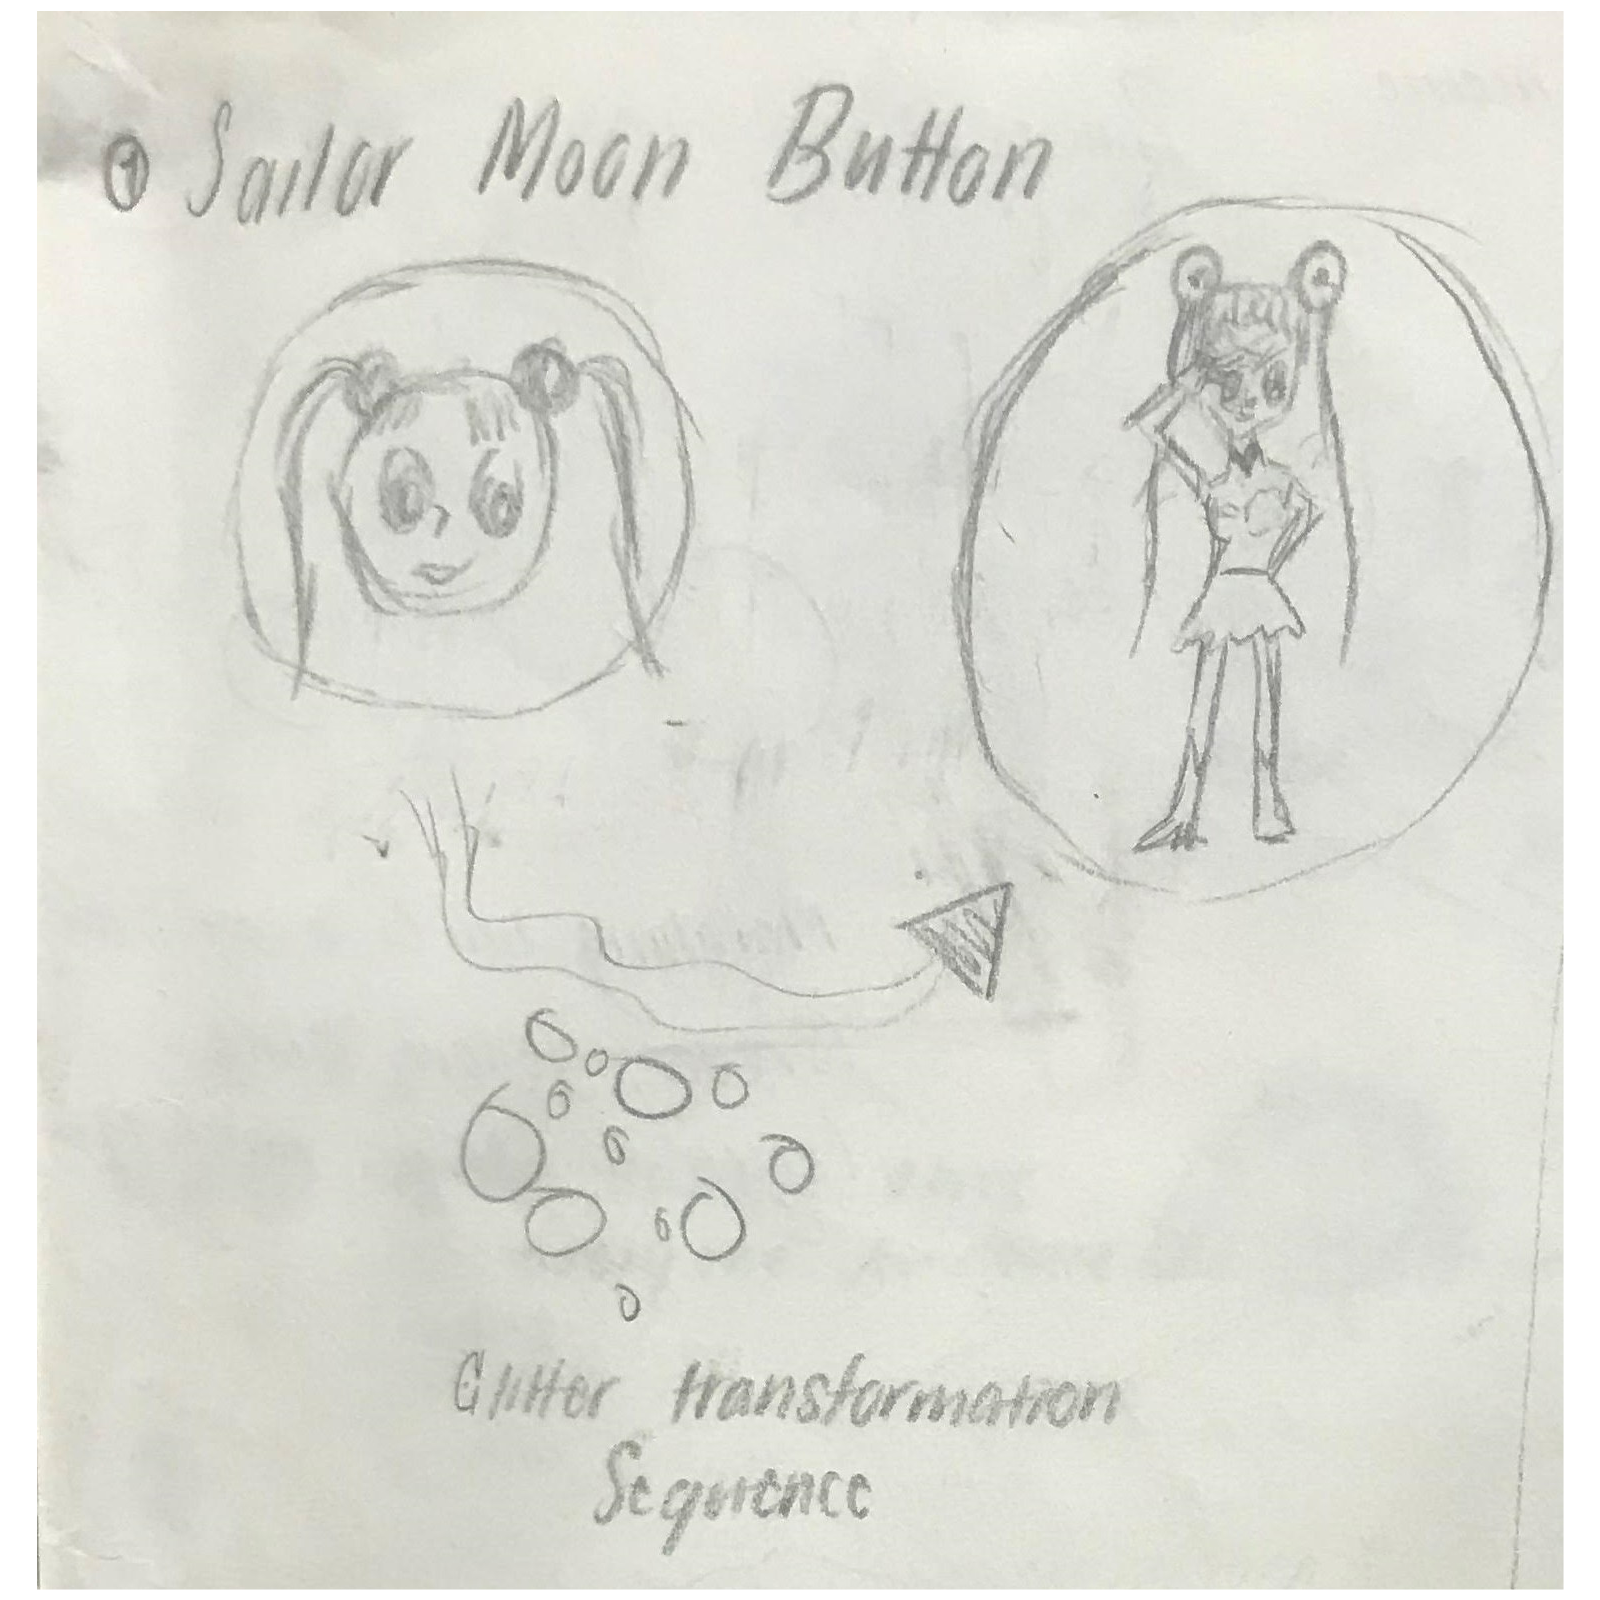 ① Sailor Moon Button
Glitter transformation
Sequence